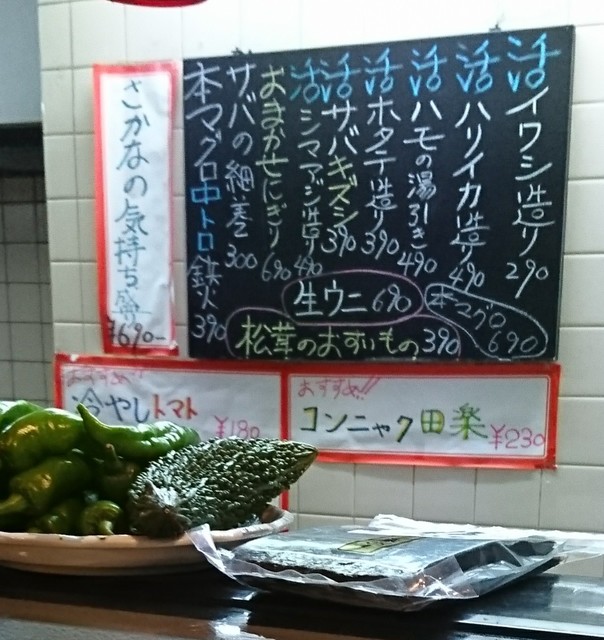 活イワシ造り290
活ハリイカ造り490
活ハモの湯引き490
活ホタテ造り390
活サバキズシ390
活シマアジ造り490
おまかせにぎり690
サバの細巻300
本マグロ中トロ鉄火390
生ウニ690
本マグロ690
松茸のおすいもの390
さかなの気持ち盛
¥690-
おすすめ!!
冷やしトマト
¥180
おすすめ!!
コンニャク田楽
¥230